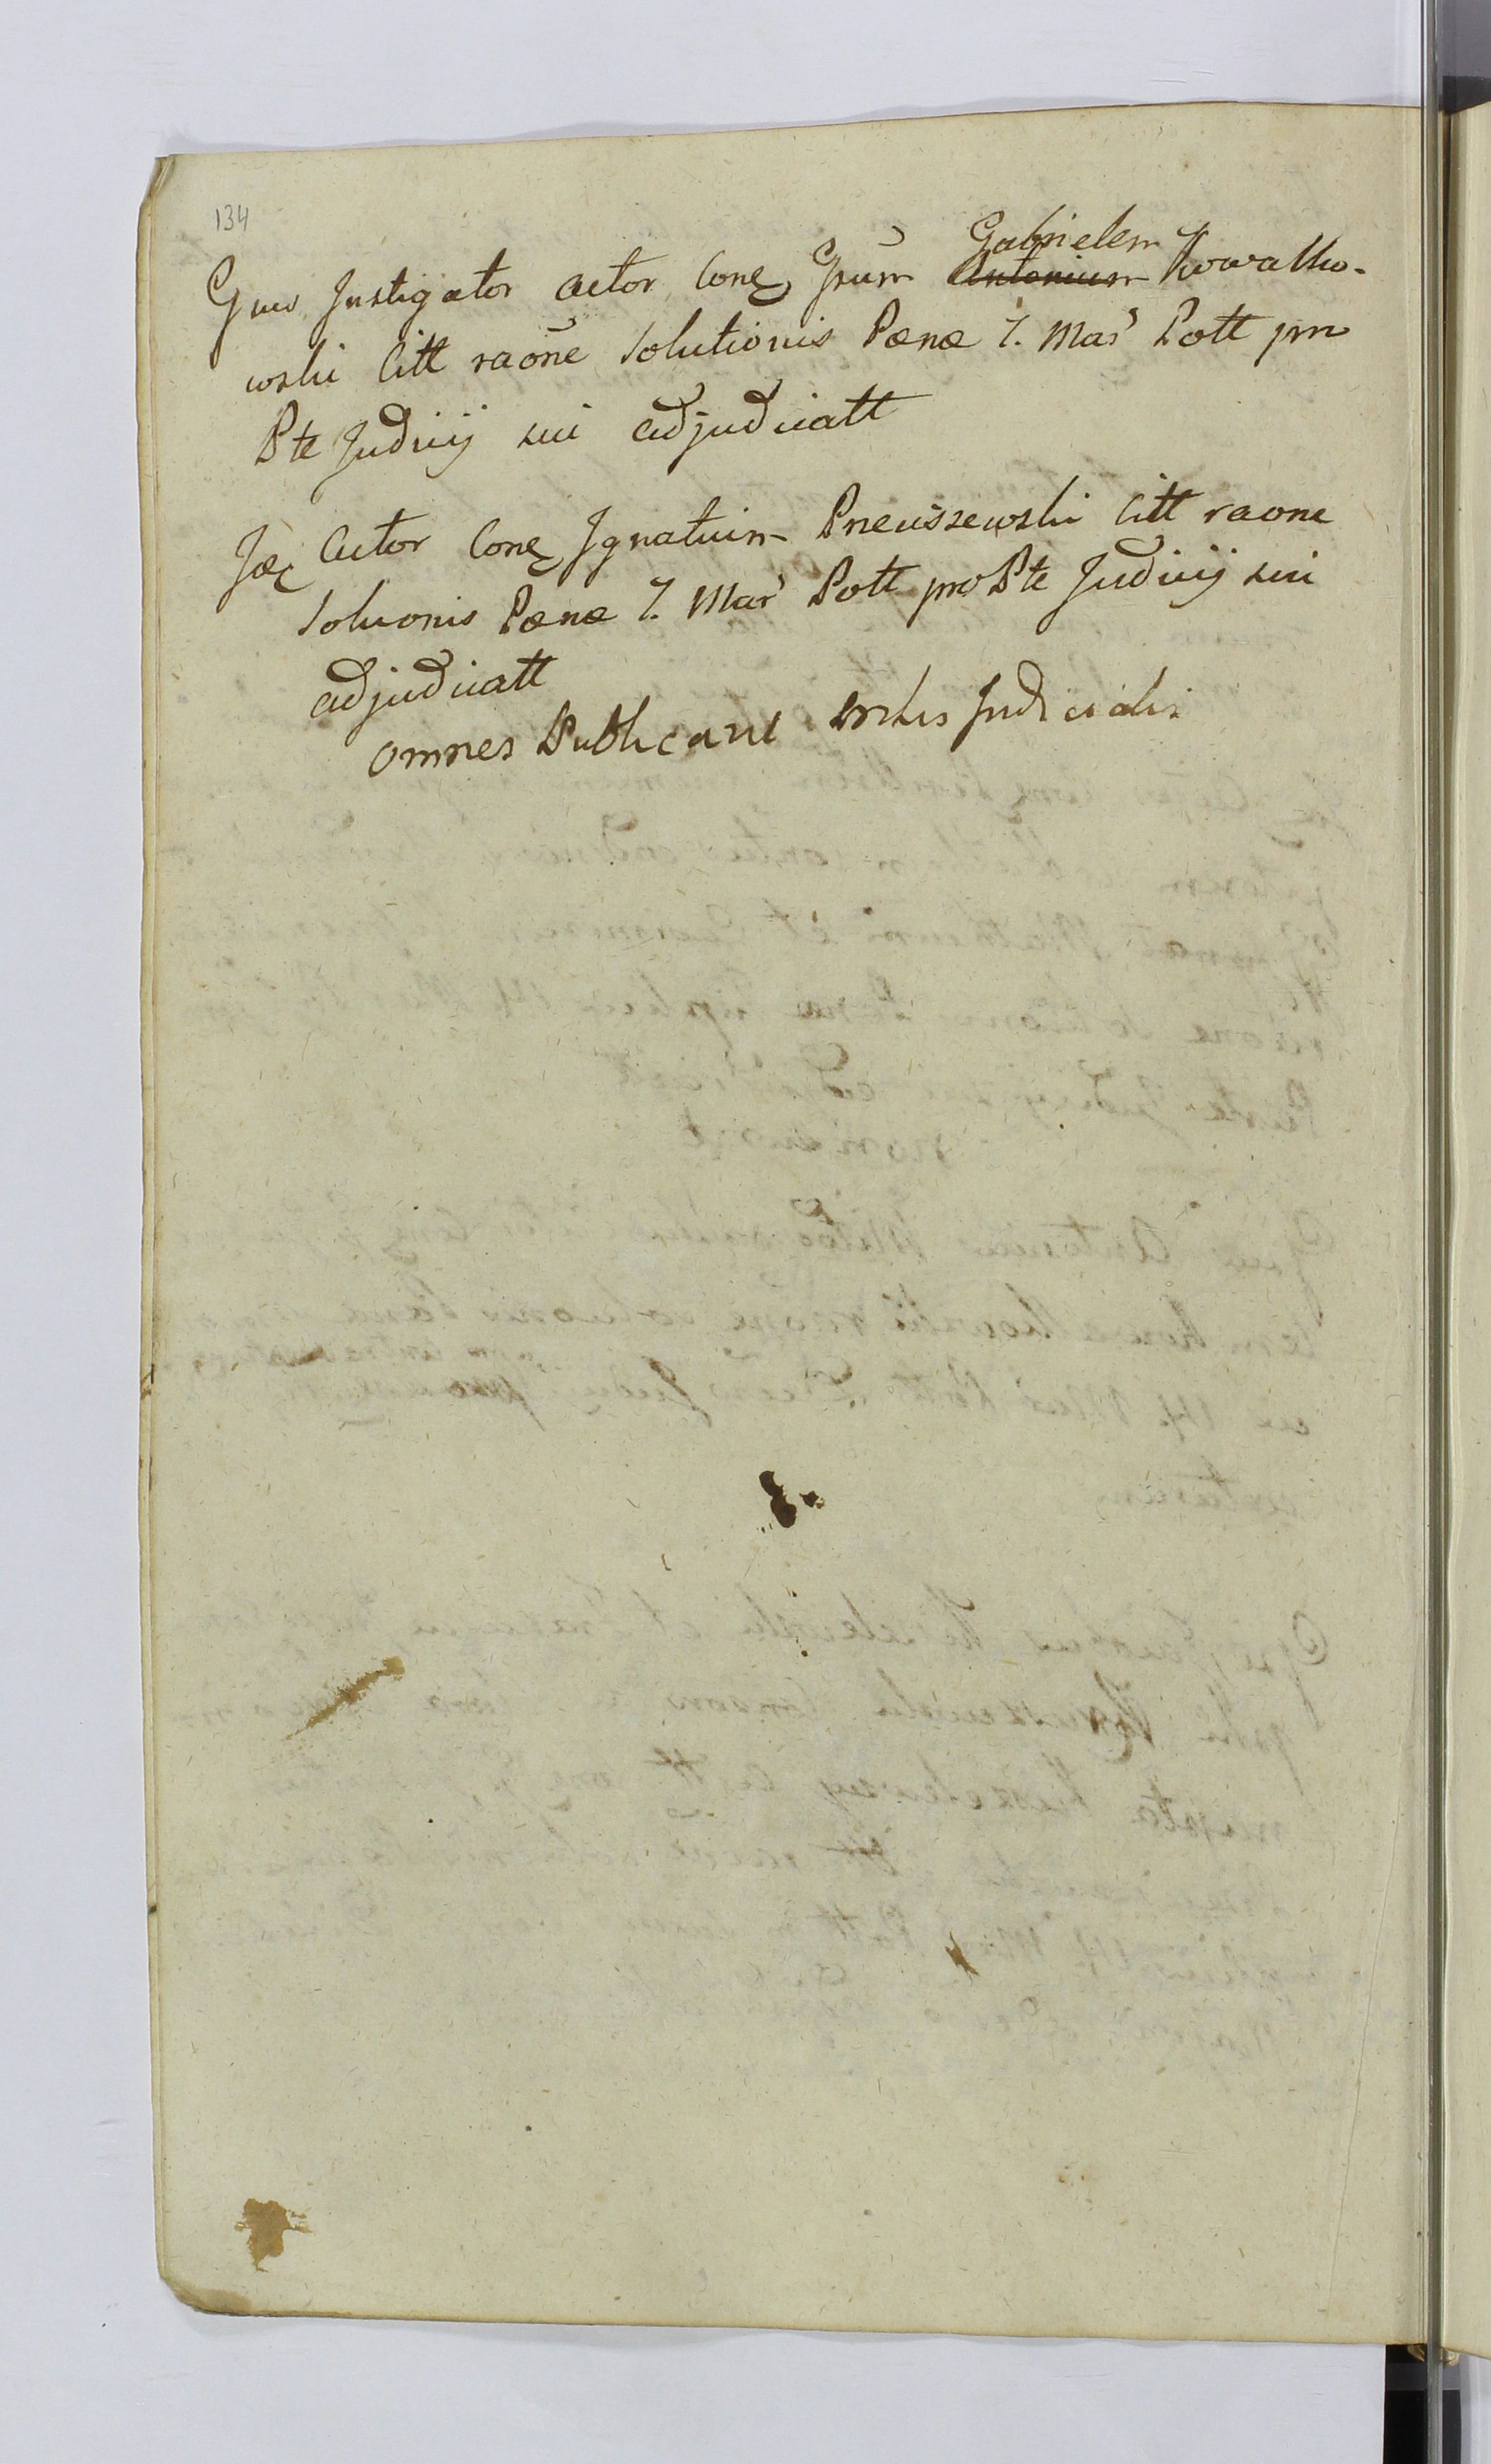 134
Gnus Instigator actor Conę Gnum Gabrielem Kowalko-
wski Citt raone Solutionis Pœnæ 7. Mar Pott pro
Pte Judicij sui adjudicatt
Actor Conę Ignatium Pneuszewski Citt raone
Soluonis Pœnæ 7. Mar Pott pro Pte Judicij sui
adjudicatt
Omnes Publicavi Judicialis